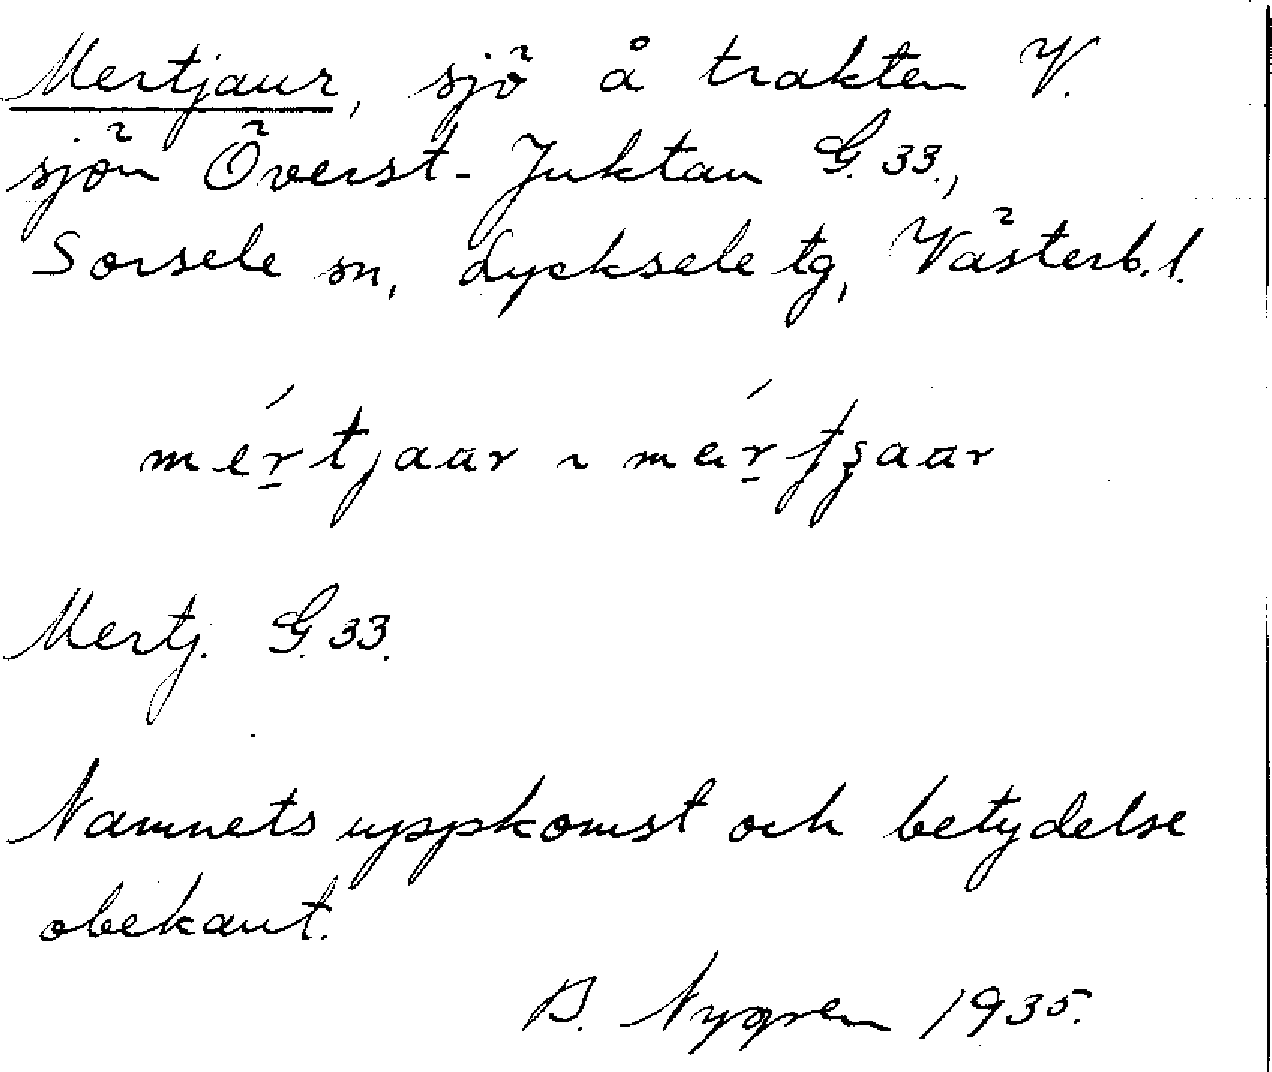 Mertjaur, sjö å trakten V.
sjön Överst-Juktan G. 33.,
Sorsele sn, Lycksele tg, Västerb. l.
mértjaar ~
Mertj. G. 33.
Namnets uppkomst och betydelse
obekant.
B. Nygren 1935.